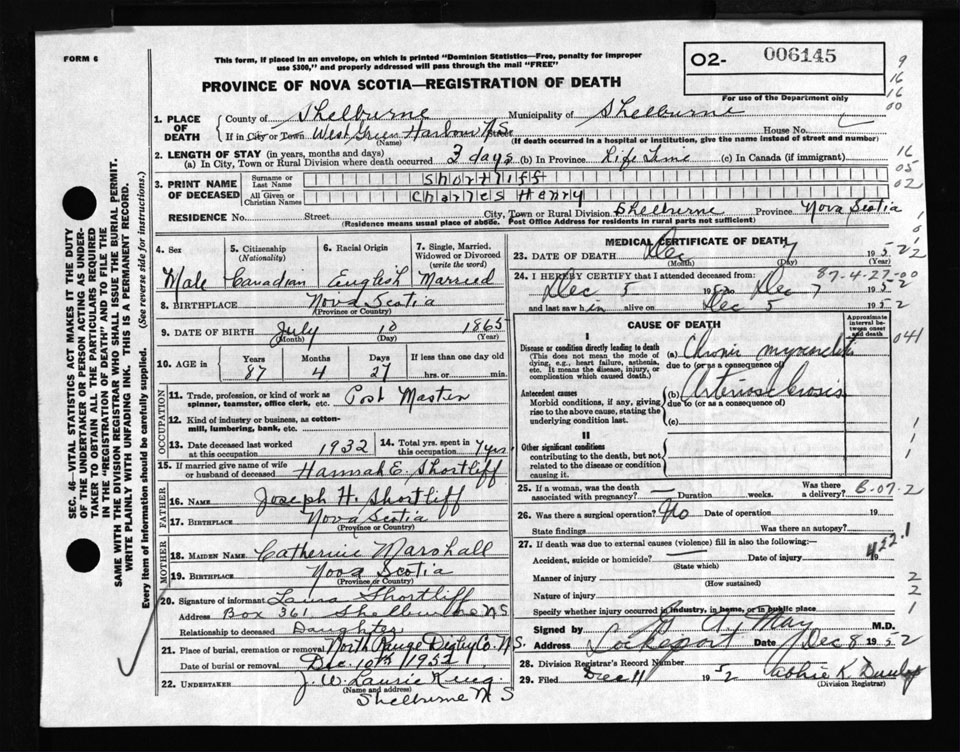 FORM 6
This form, if placed in an envelope, on which is printed "Dominion Statistics—Free, penalty for improper
use $300," and properly addressed will pass through the mail "FREE"
O2- 006145
For use of the Department only
PROVINCE OF NOVA SCOTIA—REGISTRATION OF DEATH
9
16
16
00
16
05
02
SEC. 46—VITAL STATISTICS ACT MAKES IT THE DUTY
OF THE UNDERTAKER OR PERSON ACTING AS UNDER-
TAKER TO OBTAIN ALL THE PARTICULARS REQUIRED
IN THE "REGISTRATION OF DEATH" AND TO FILE THE
SAME WITH THE DIVISION REGISTRAR WHO SHALL ISSUE THE BURIAL PERMIT.
WRITE PLAINLY WITH UNFADING INK. THIS IS A PERMANENT RECORD.
Every item of information should be carefully supplied. (See reverse side for instructions.)
1. PLACE OF DEATH
County of Shelburne Municipality of Shelburne
If in City or Town West Green Harbour N.S. House No.
(Name) (If death occurred in a hospital or institution, give the name instead of street and number)
2. LENGTH OF STAY (in years, months and days)
(a) In City, Town or Rural Division where death occurred 3 days (b) In Province Life Time (c) In Canada (if immigrant)
3. PRINT NAME OF DECEASED
Surname or Last Name Shortliff
All Given or Christian Names Charles Henry
RESIDENCE No. Street City, Town or Rural Division Shelburne Province Nova Scotia
(Residence means usual place of abode. Post Office Address for residents in rural parts not sufficient)
4. Sex
Male
5. Citizenship (Nationality)
Canadian
6. Racial Origin
English
7. Single, Married, Widowed or Divorced (write the word)
Married
8. BIRTHPLACE Nova Scotia
(Province or Country)
9. DATE OF BIRTH July 10 1865
(Month) (Day) (Year)
10. AGE in Years Months Days If less than one day old
87 4 27 hrs. or min.
OCCUPATION
11. Trade, profession, or kind of work as spinner, teamster, office clerk, etc. Post Master
12. Kind of industry or business, as cotton-mill, lumbering, bank, etc.
13. Date deceased last worked at this occupation 1932
14. Total yrs. spent in this occupation 7 yrs.
15. If married give name of wife or husband of deceased Hannah E. Shortliff
FATHER
16. NAME Joseph H. Shortliff
17. BIRTHPLACE Nova Scotia
(Province or Country)
MOTHER
18. MAIDEN NAME Catherine Marshall
19. BIRTHPLACE Nova Scotia
(Province or Country)
20. Signature of informant Laura Shortliff
Address Box 361 Shelburne N S
Relationship to deceased Daughter
21. Place of burial, cremation or removal North Range Digby Co. N.S.
Date of burial or removal Dec. 10th 1952
22. UNDERTAKER J. W. Laurie King
(Name and address)
Shelburne N S
MEDICAL CERTIFICATE OF DEATH
23. DATE OF DEATH Dec 7 1952
(Month) (Day) (Year)
87-4-27-00
24. I HEREBY CERTIFY that I attended deceased from:
Dec 5 1952 to Dec 7 1952
and last saw him alive on Dec 5 1952
CAUSE OF DEATH
Approximate interval between onset and death
I
Disease or condition directly leading to death
(This does not mean the mode of dying, e.g., heart failure, asthenia, etc. It means the disease, injury, or complication which caused death.)
(a) Chronic myocarditis
due to (or as a consequence of)
041
Antecedent causes
Morbid conditions, if any, giving rise to the above cause, stating the underlying condition last.
(b) Arteriosclerosis
due to (or as a consequence of)
(c)
II
Other significant conditions
contributing to the death, but not related to the disease or condition causing it.
25. If a woman, was the death associated with pregnancy? Duration weeks. Was there a delivery?
B-07-2
26. Was there a surgical operation? No Date of operation 19
State findings Was there an autopsy?
27. If death was due to external causes (violence) fill in also the following:—
422.1
Accident, suicide or homicide? Date of injury 19
(State which)
Manner of injury
(How sustained)
Nature of injury
Specify whether injury occurred in industry, in home, or in public place
Signed by A. May M.D.
Address Lockeport Date Dec 8 1952
28. Division Registrar's Record Number
29. Filed Dec 11 1952 K. Dunlop
(Division Registrar)